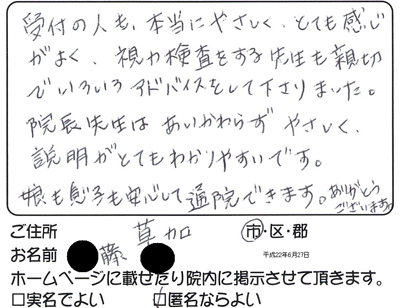 受付の人も、本当にやさしく、とても感じ
がよく、視力検査をする先生も親切
でいろいろアドバイスをして下さりました。
院長先生はあいかわらずやさしく、
説明がとてもわかりやすいです。
娘も息子も安心して通院できます。ありがとう
ございます。
ご住所 草加 市・区・郡
お名前 藤 平成22年6月27日
ホームページに載せたり院内に掲示させて頂きます。
□実名でよい □匿名ならよい